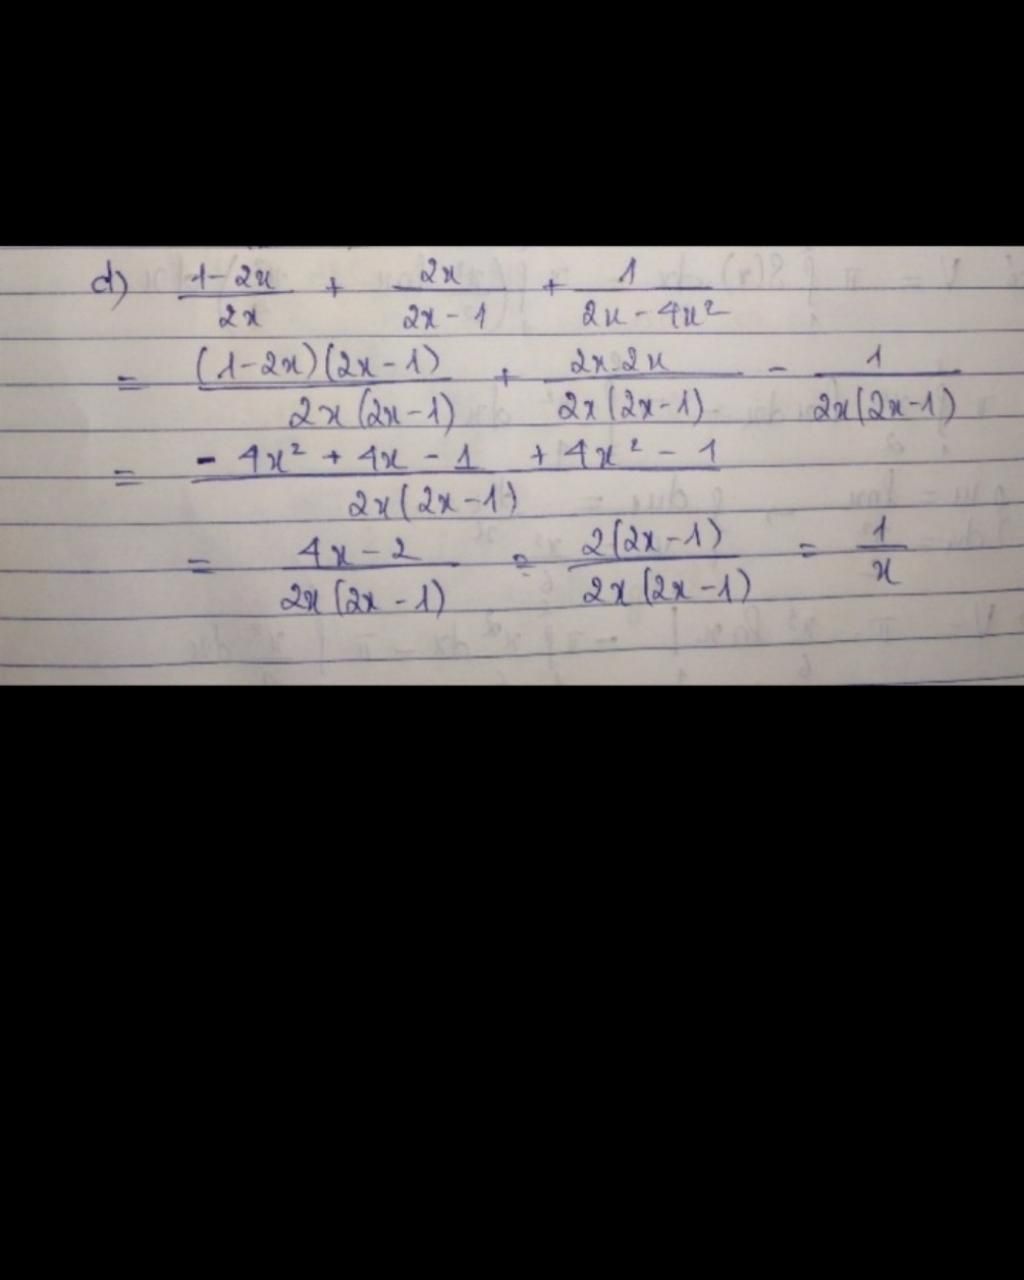 d) (1-2x)/(2x) + (2x)/(2x-1) + 1/(2x-4x²)
= ((1-2x)(2x-1))/(2x(2x-1)) + (2x.2x)/(2x(2x-1)) - 1/(2x(2x-1))
= (-4x² + 4x - 1 + 4x² - 1)/(2x(2x-1))
= (4x-2)/(2x(2x-1)) = (2(2x-1))/(2x(2x-1)) = 1/x